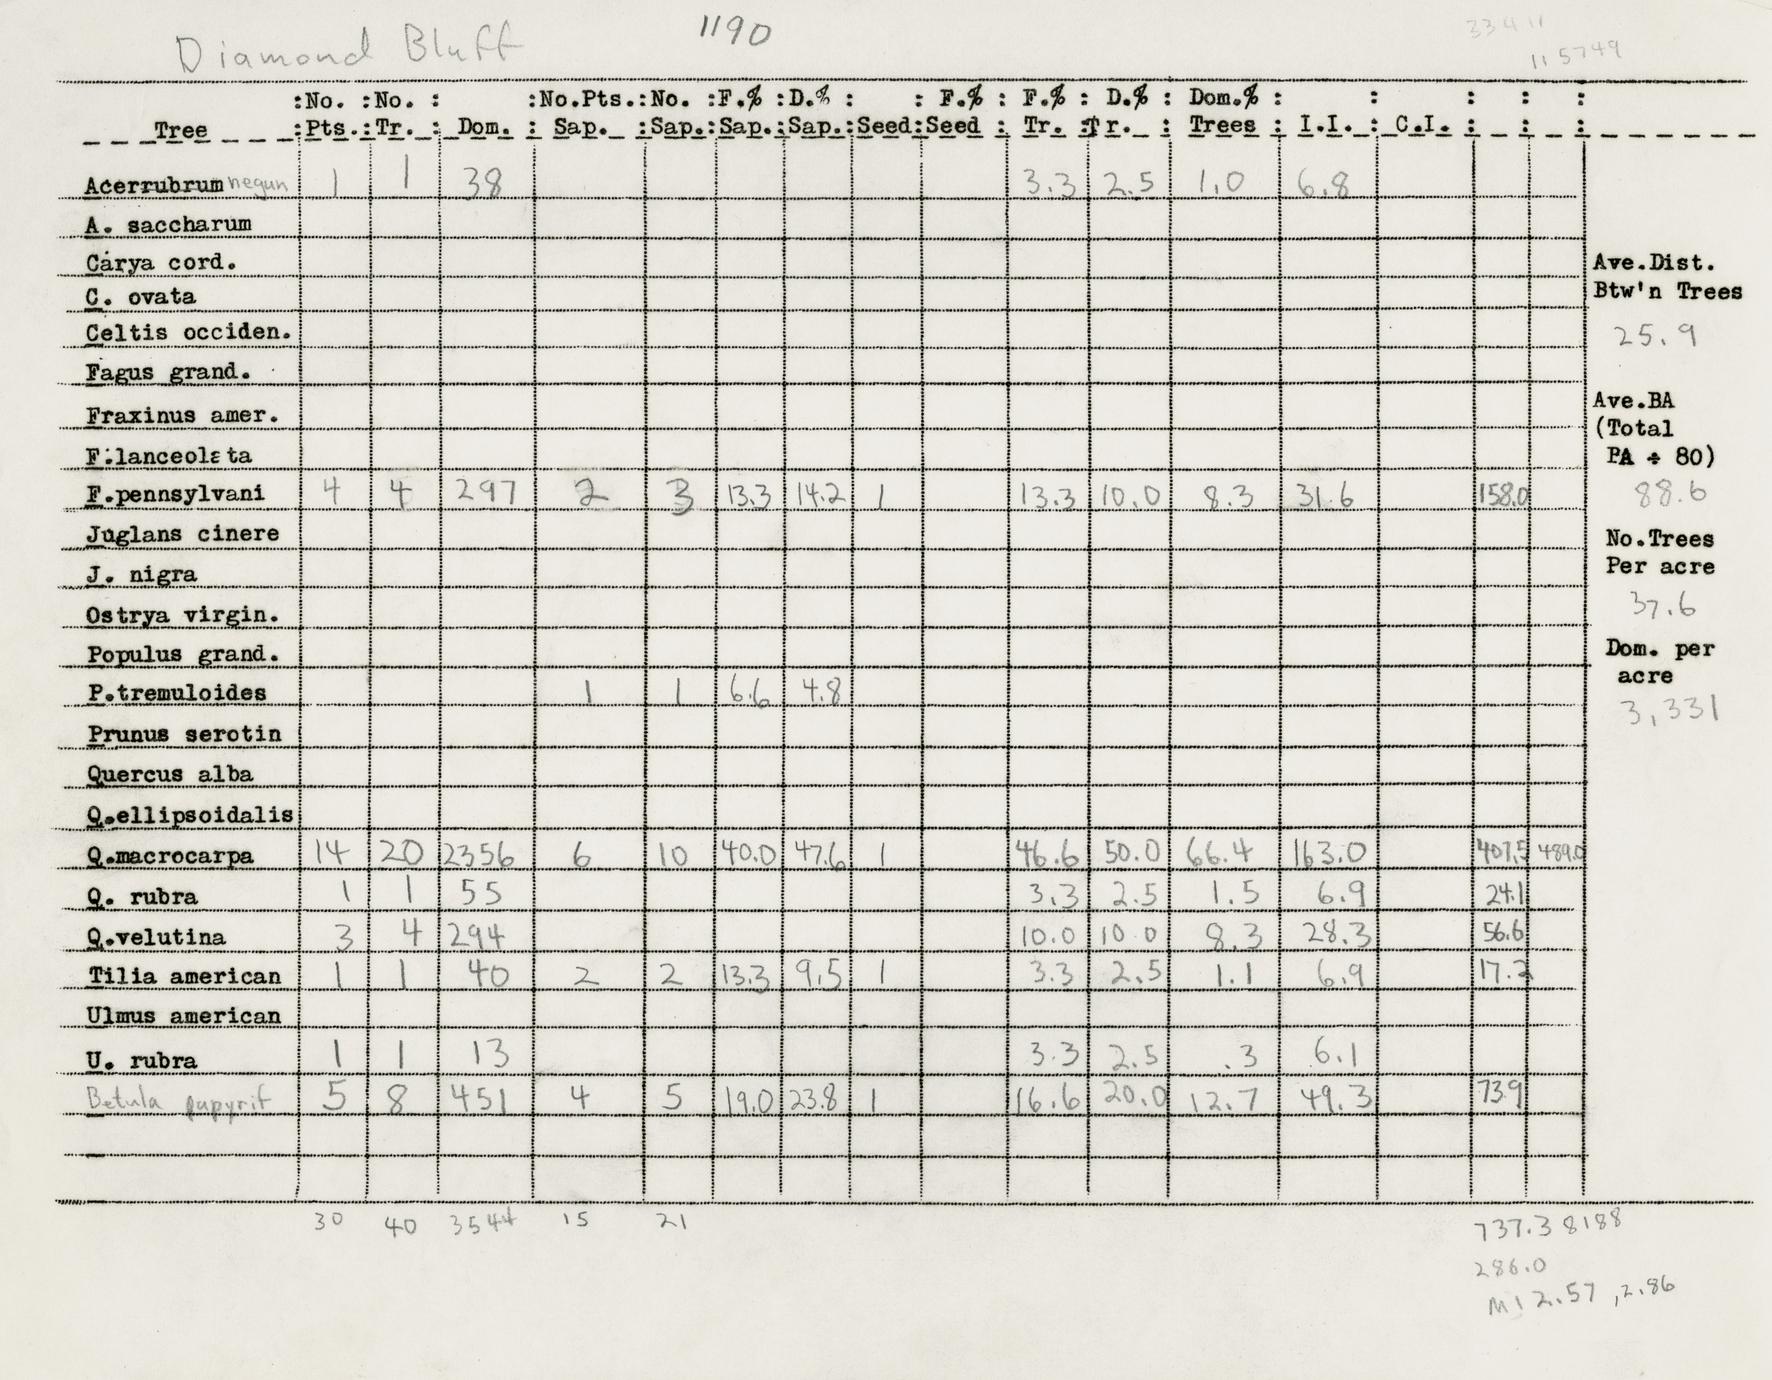 Diamond Bluff 1190 33411
115749
:No. :No. : :No.Pts.:No. :F.% :D.% : : F.% : F.% : D.% : Dom.% : : : : :
Tree :Pts.:Tr. : Dom. : Sap. :Sap.:Sap.:Sap.:Seed:Seed : Tr. :Tr. : Trees : I.I. : C.I. : : :
Acer rubrum negun 1 1 38 3.3 2.5 1.0 6.8
A. saccharum
Carya cord.
C. ovata
Celtis occiden.
Fagus grand.
Fraxinus amer.
F.lanceolata
F.pennsylvani 4 4 297 2 3 13.3 14.2 1 13.3 10.0 8.3 31.6 158.0
Juglans cinere
J. nigra
Ostrya virgin.
Populus grand.
P.tremuloides 1 1 6.6 4.8
Prunus serotin
Quercus alba
Q.ellipsoidalis
Q.macrocarpa 14 20 2356 6 10 40.0 47.6 1 46.6 50.0 66.4 163.0 407.5 489.0
Q. rubra 1 1 55 3.3 2.5 1.5 6.9 24.1
Q.velutina 3 4 294 10.0 10.0 8.3 28.3 56.6
Tilia american 1 1 40 2 2 13.3 9.5 1 3.3 2.5 1.1 6.9 17.2
Ulmus american
U. rubra 1 1 13 3.3 2.5 .3 6.1
Betula papyrif 5 8 451 4 5 19.0 23.8 1 16.6 20.0 12.7 49.3 73.9
30 40 3544 15 21
737.3 8188
286.0
M1 2.57, 2.86
Ave.Dist.
Btw'n Trees
25.9
Ave.BA
(Total
PA ÷ 80)
88.6
No.Trees
Per acre
37.6
Dom. per
acre
3,331